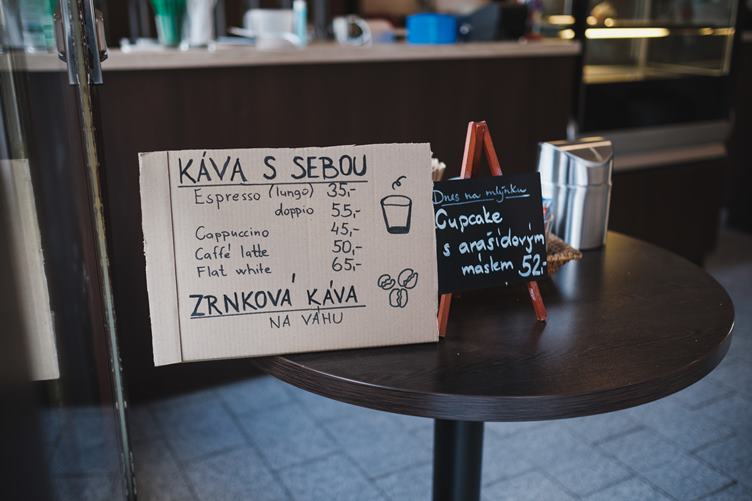 KÁVA S SEBOU
Espresso (lungo) 35,-
doppio 55,-
Cappuccino 45,-
Caffé latte 50,-
Flat white 65,-
ZRNKOVÁ KÁVA
NA VÁHU
Dnes na mlýnku
Cupcake
s arašídovým
máslem 52,-